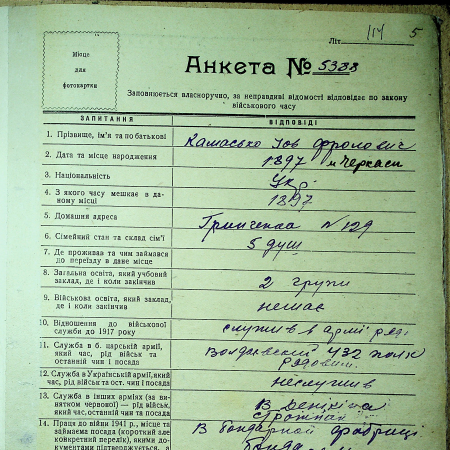 Літ. 114 5
Місце
для
фотокартки
Анкета № 5388
Заповнюється власноручно, за неправдиві відомості відповідає по закону
військового часу
ЗАПИТАННЯ ВІДПОВІДІ
1. Прізвище, ім'я та по батькові Камасько Іов Фролович
2. Дата та місце народження 1897 м Черкаси
3. Національність Укр.
4. З якого часу мешкає в да-
ному місці 1897
5. Домашня адреса Грінченка № 129
6. Сімейний стан та склад сім'ї 5 душ
7. Де проживав та чим займався
до переїзду в дане місце
8. Загальна освіта, який учбовий
заклад, де і коли закінчив 2 групи
9. Військова освіта, який заклад,
де і коли закінчив немає
10. Відношення до військової
служби до 1917 року служив в армії ряд
11. Служба в б. царській армії,
який час, рід військ та
останній чин і посада 432 полк
рядовим
12. Служба в Українській армії, який
час, рід військ та ост. чин і посада неслужив
13. Служба в інших арміях (за ви-
нятком червоної) — рід військ,
який час, останній чин та посада В Денікіна
14. Праця до війни 1941 р., місце та
займаєма посада (короткий але
конкретний перелік), якими доку-
ментами підтверджується, а В бондарной фабриці